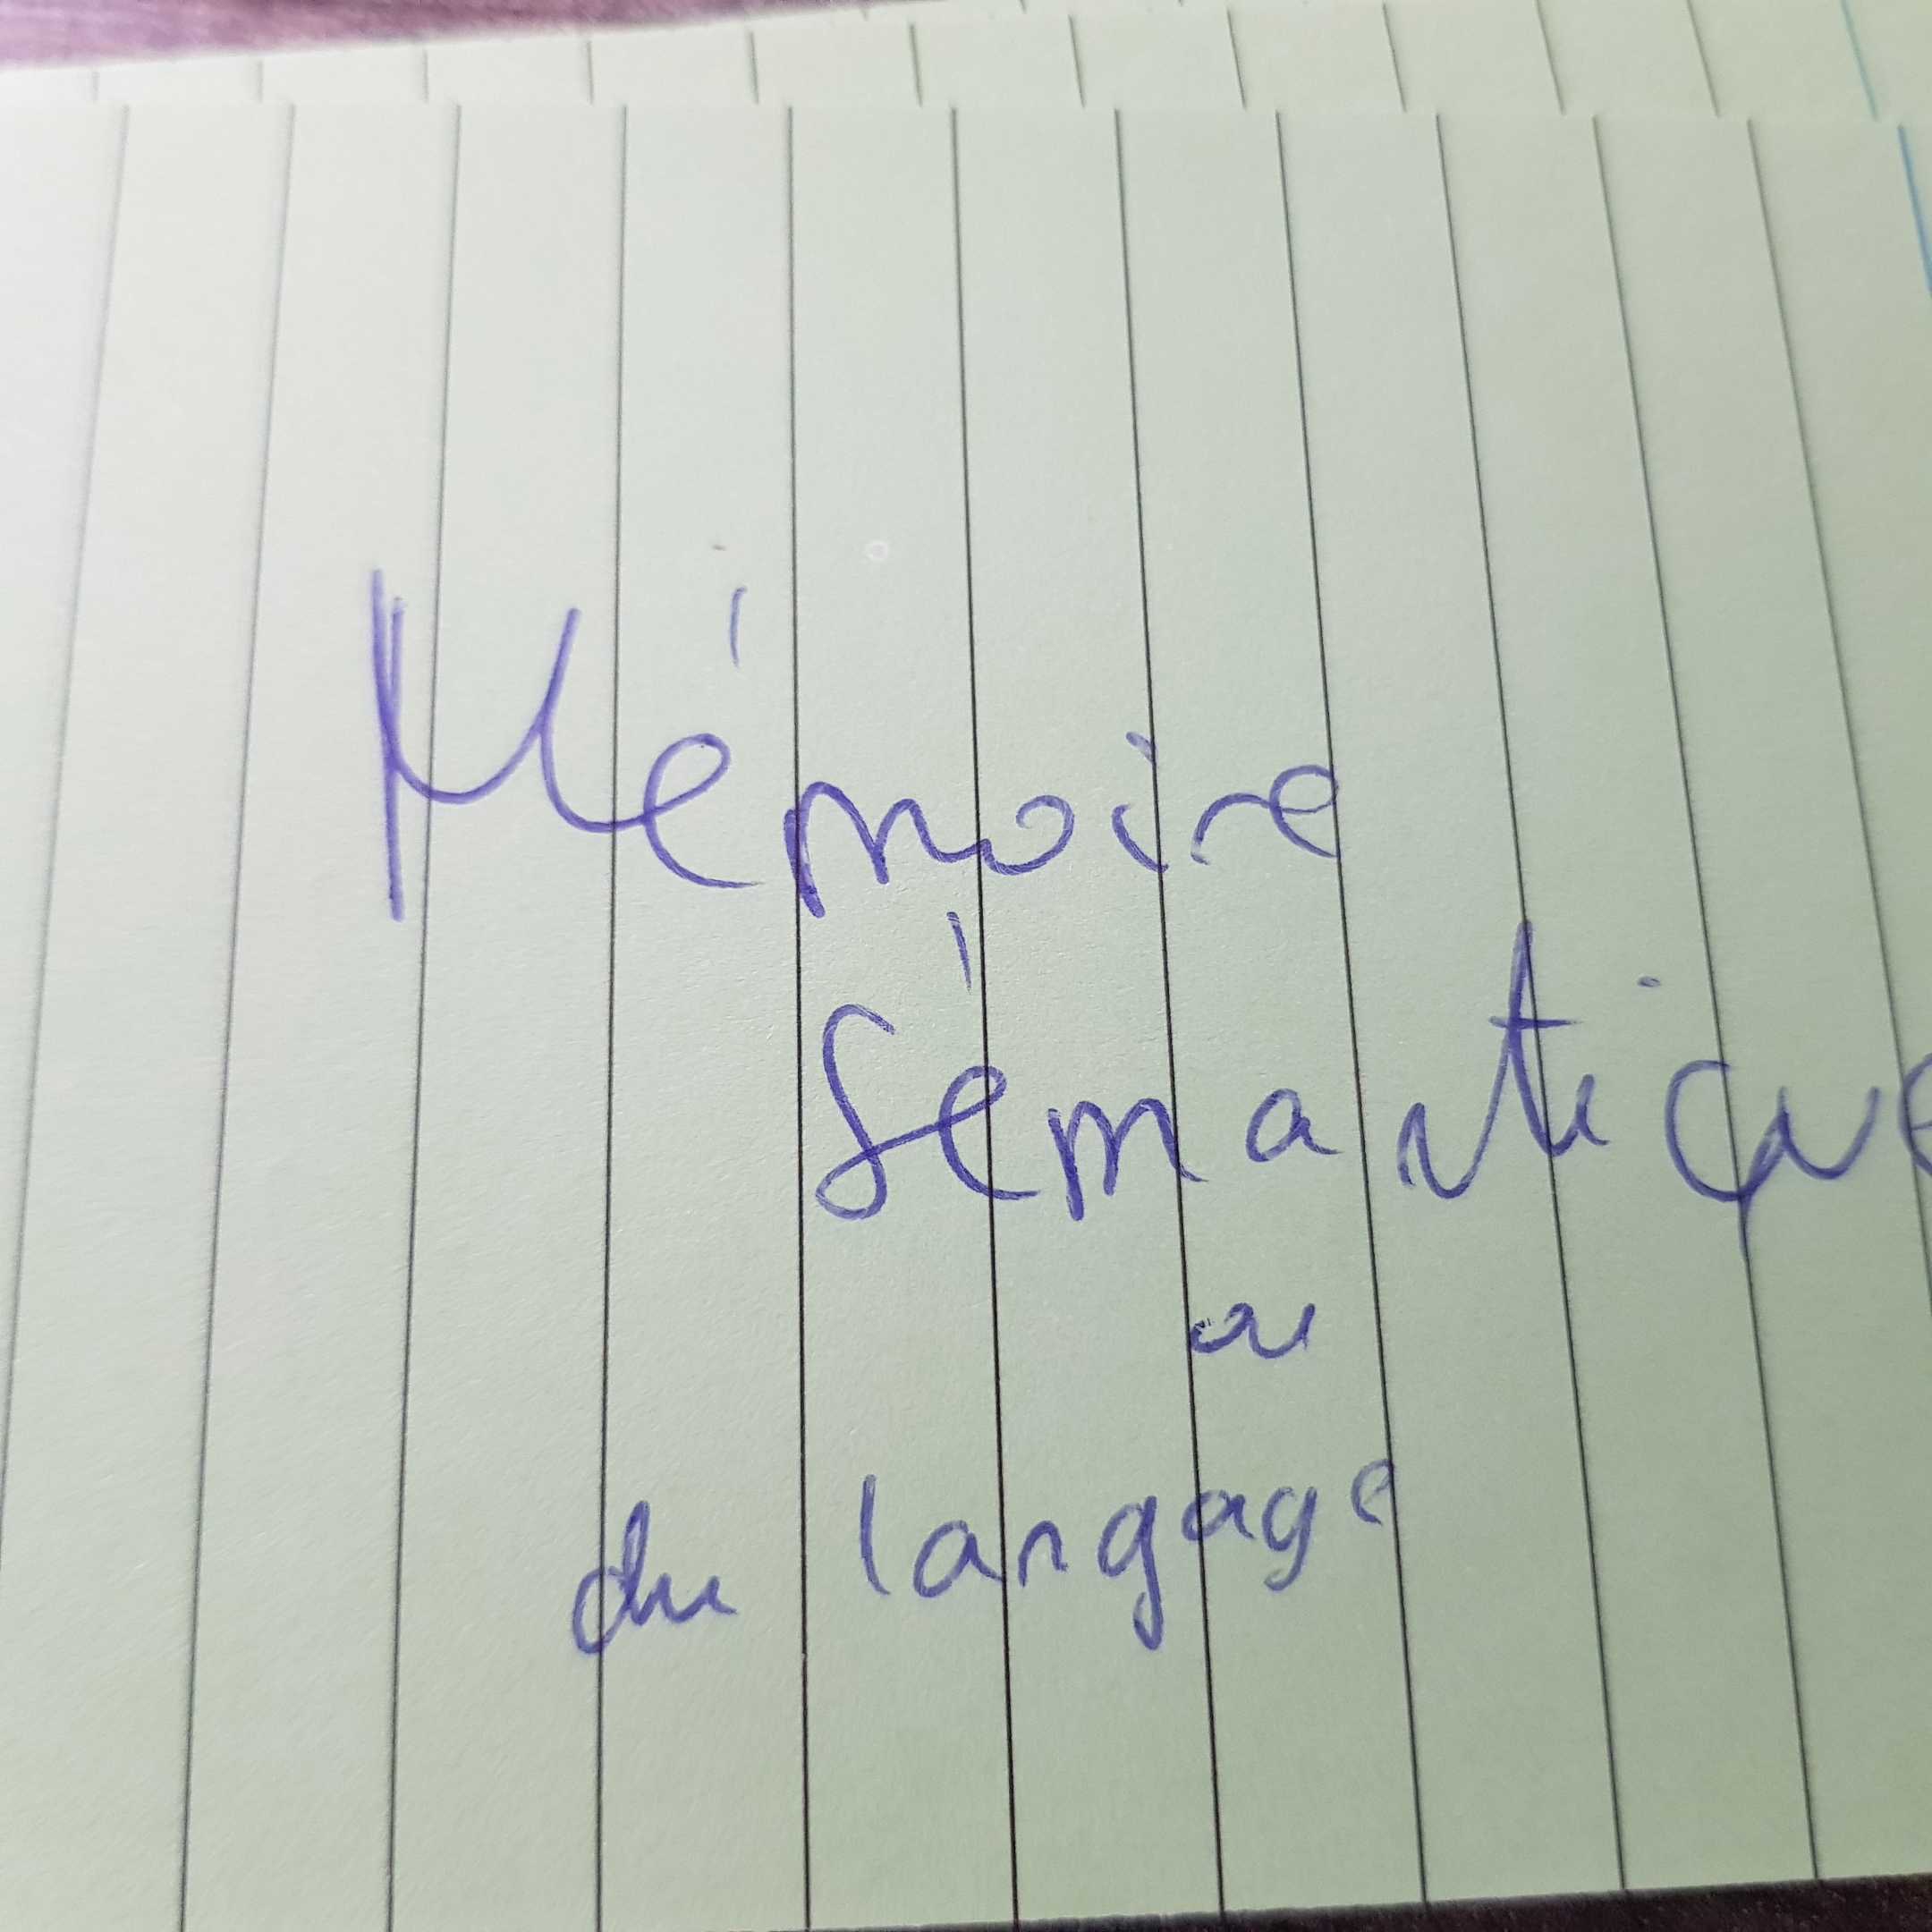 Mémoire
Sémantique
ou
du langage